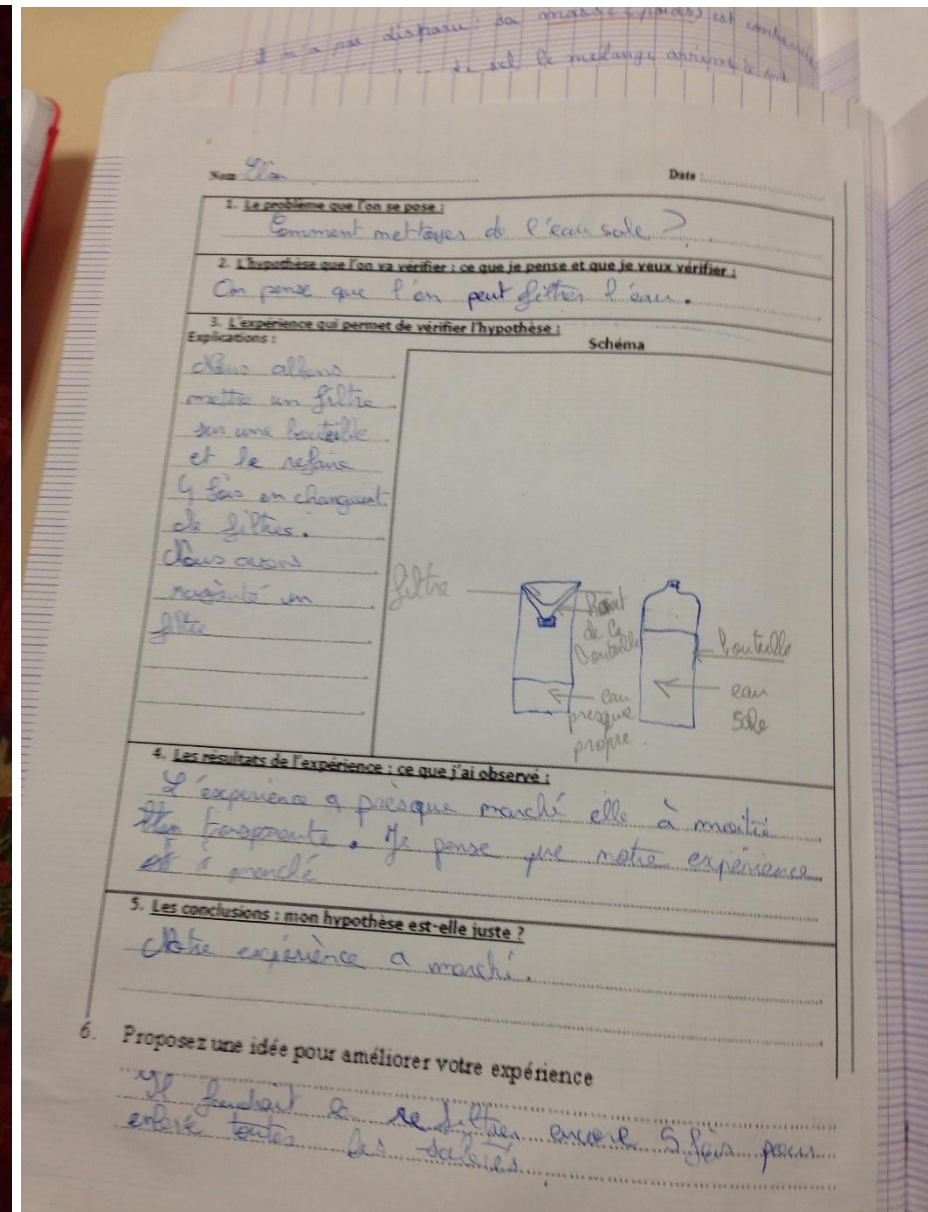 il n'a pas disparu : sa masse (poids) est
le mélange
Nom Date :
1. Le problème que l'on se pose :
Comment mettoyer de l'eau sale ?
2. L'hypothèse que l'on va vérifier : ce que je pense et que je veux vérifier :
On pense que l'on peut filtrer l'eau.
3. L'expérience qui permet de vérifier l'hypothèse :
Explications :
Schéma
Nous allons
mettre un filtre
sur une bouteille
et le refaire
4 fois en changeant
de filtres.
Nous avons
un
filtre
filtre
de la
bouteille
eau
presque
propre.
bouteille
eau
sale
4. Les résultats de l'expérience : ce que j'ai observé :
L'expérience a presque marché elle à moitié
. Je pense que notre expérience
à marché
5. Les conclusions : mon hypothèse est-elle juste ?
Notre expérience a marché.
6. Proposez une idée pour améliorer votre expérience
Il faudrait le refiltrer encore 5 fois pour
enlevé toutes les saletés.